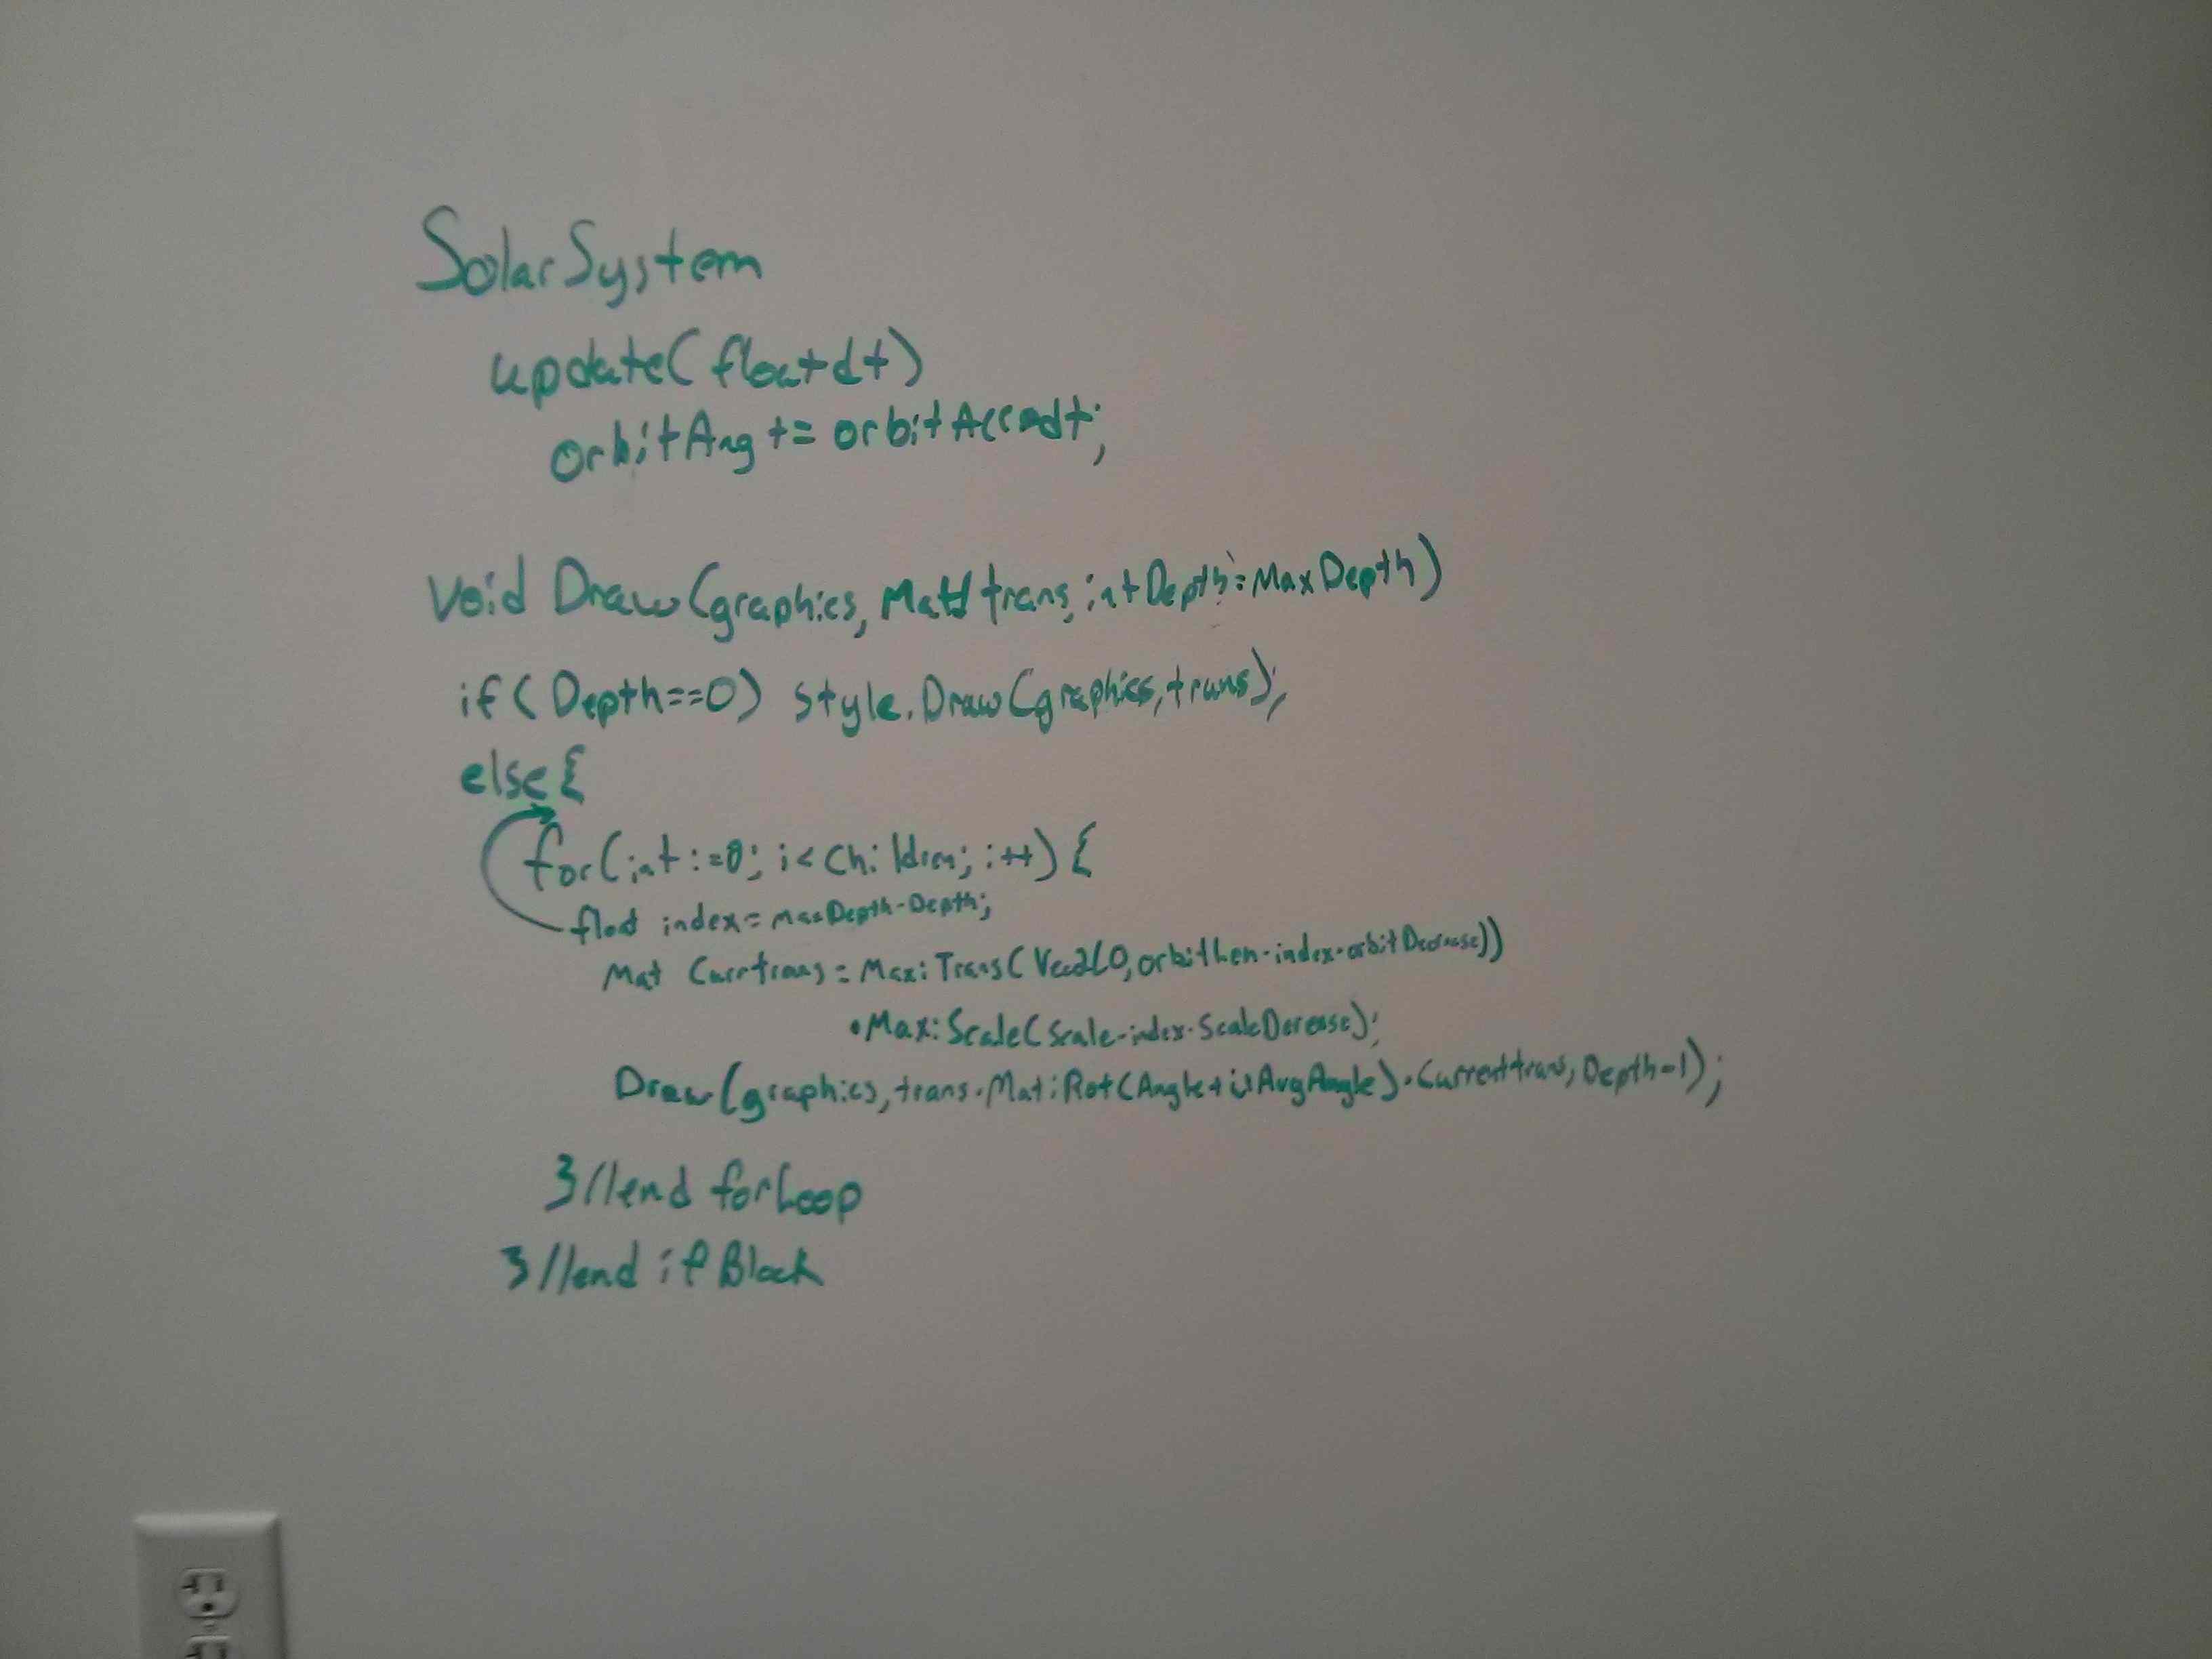 SolarSystem
update(float dt)
orbitAng += orbitAcc•dt;
void Draw(graphics, trans, int Depth=MaxDepth)
if(Depth==0) style.Draw(graphics,trans);
else{
for(int i=0; i<Children; i++){
float index=maxDepth-Depth;
Mat Currtrans = Max:Trans(Vec2(0,orbitlen-index•orbitDecrease))
•Max:Scale(scale-index•ScaleDerease);
Draw(graphics,trans•Mat:Rot(Angle+i*AvgAngle)•Currenttrans,Depth-1);
}//end forLoop
}//end ifBlock